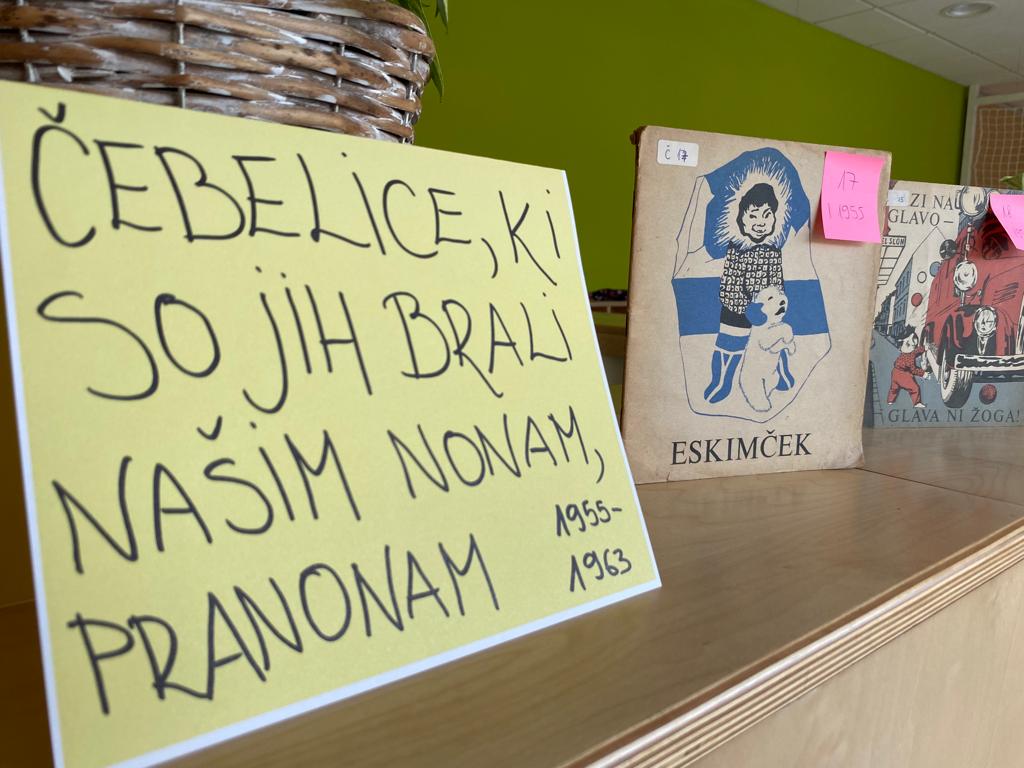 ČEBELICE, KI
SO JIH BRALI
NAŠIM NONAM,
PRANONAM
1955-
1963
Č 17
17
1955
ESKIMČEK
ZI NA
GLAVO–
18
GLAVA NI ŽOGA!